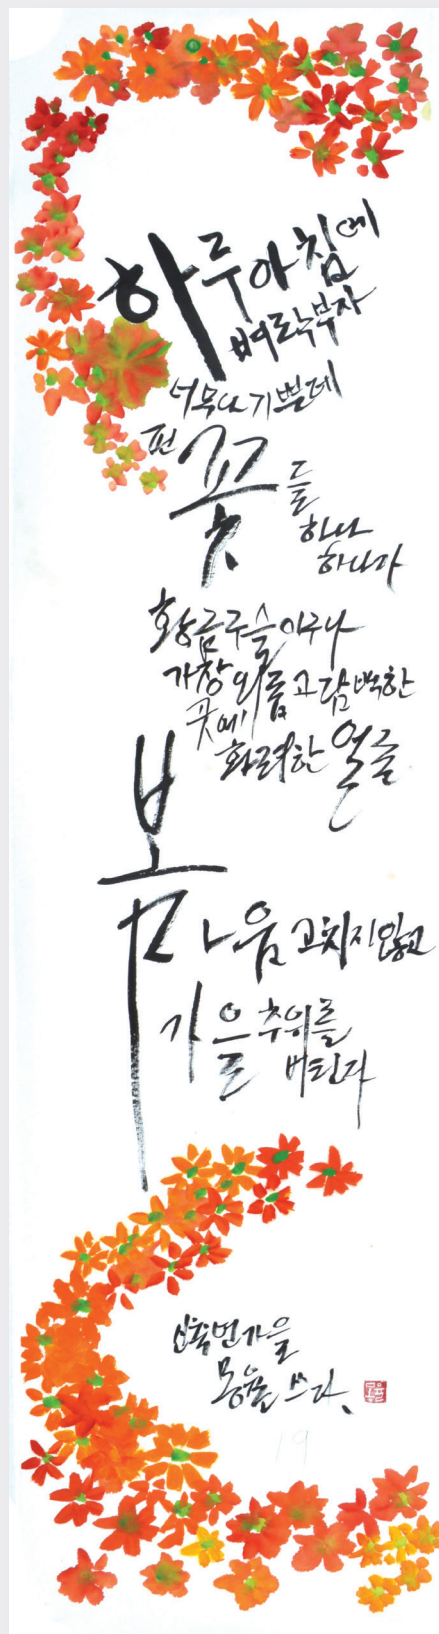 하루아침에
벼락부자
너무나 기쁠데
핀 꽃들
하나
하나가
황금구슬이구나
가장 외롭고 담백한
곳에
화려한 얼굴
봄
마음 고치지 않고
가을 추위를
버틴다
신축년가을
몽율 쓰다.
19